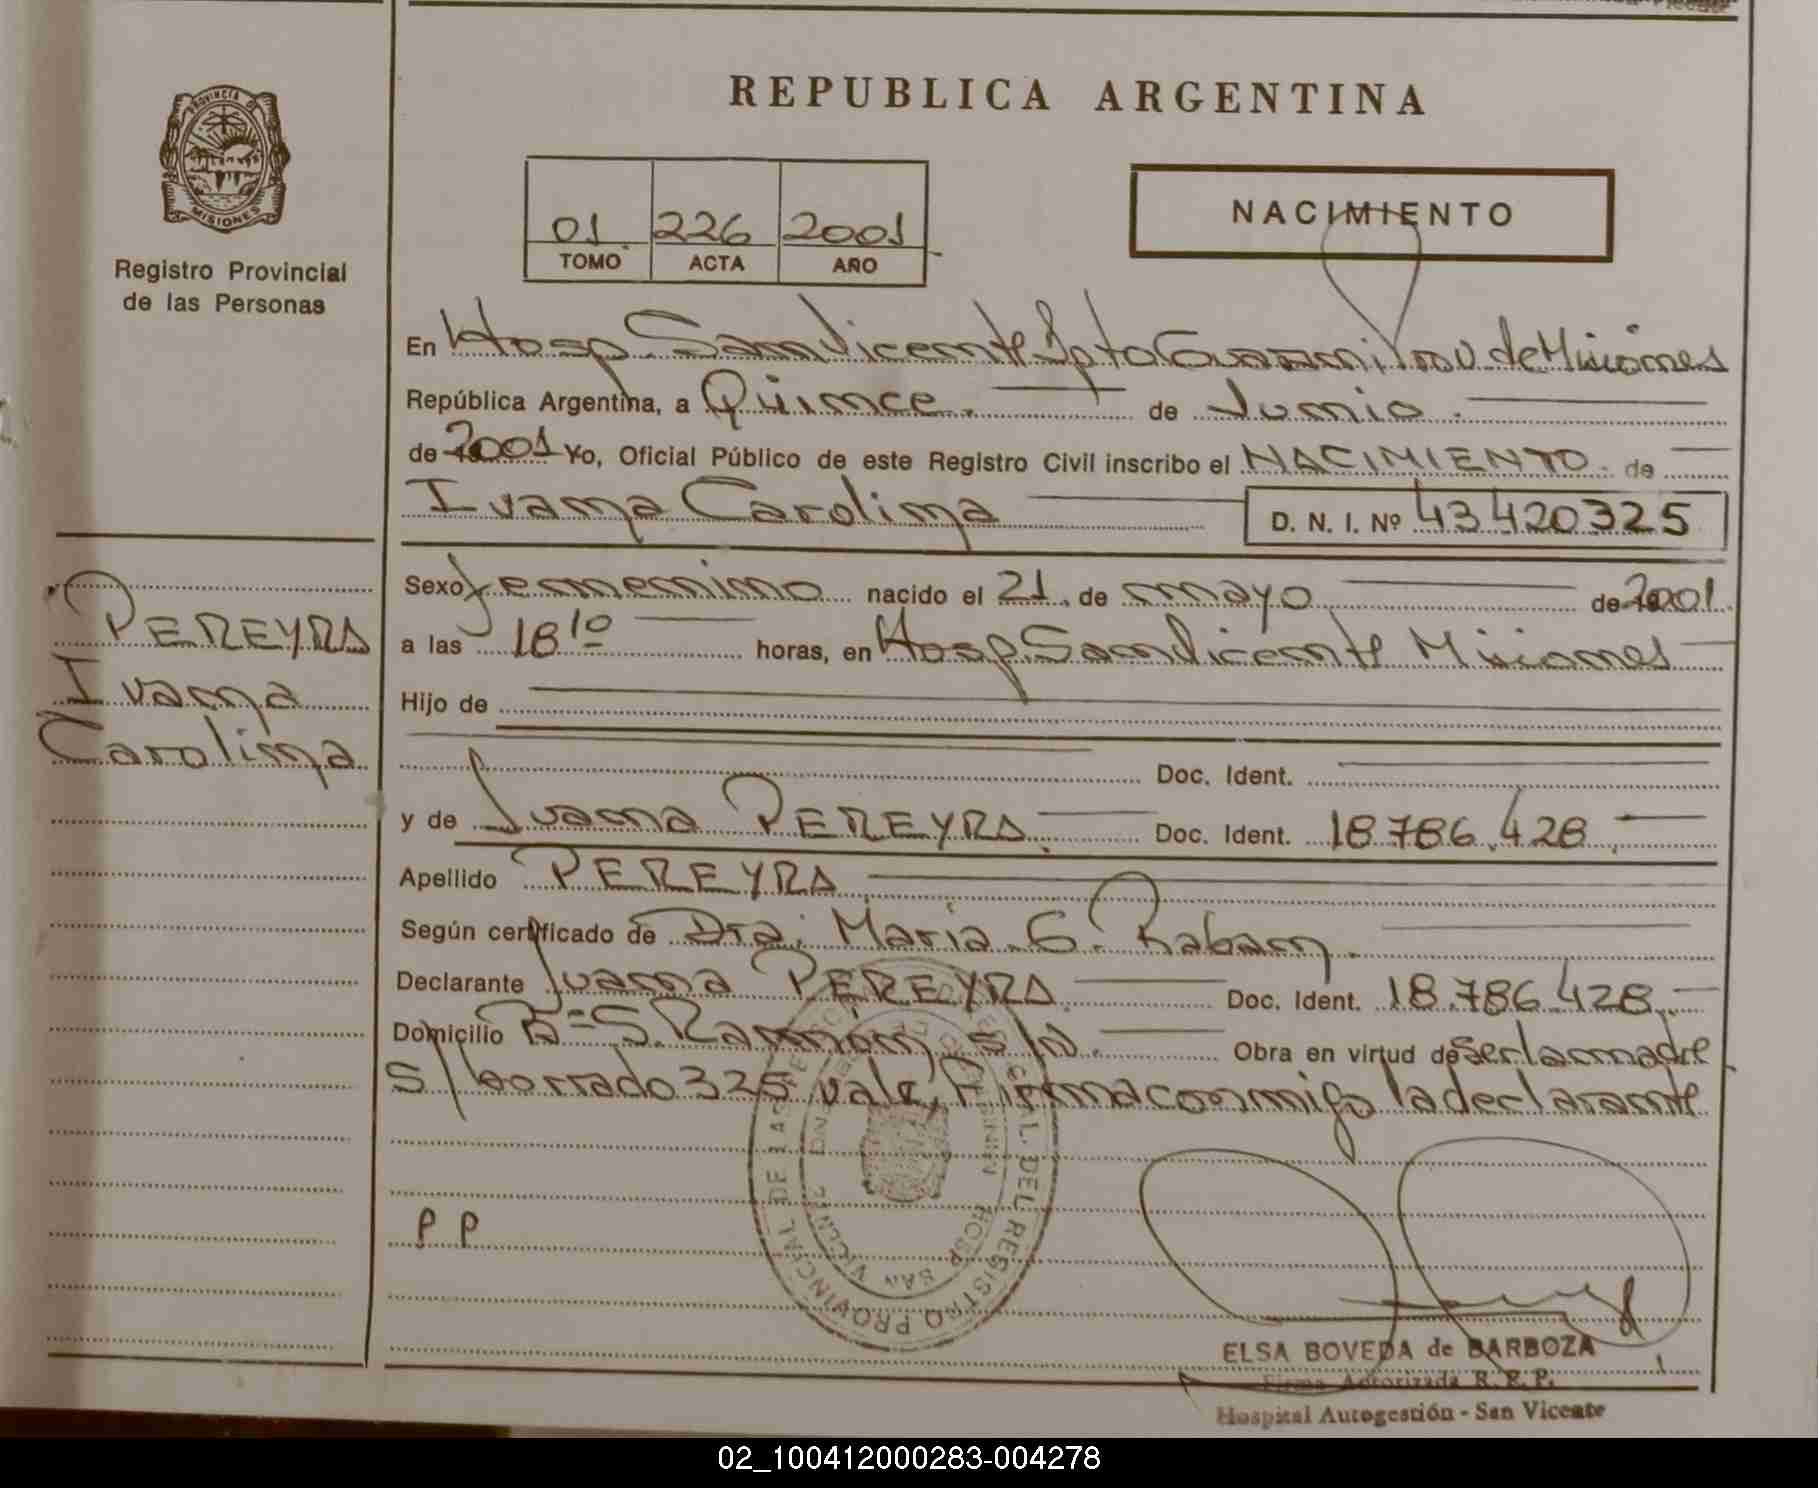 REPUBLICA ARGENTINA
PROVINCIA DE
MISIONES
Registro Provincial
de las Personas
01 226 2001
TOMO ACTA AÑO
NACIMIENTO
En Hosp. San Vicente Dpto Guaraní Prov. de Misiones
República Argentina, a Quince. de Junio.
de 2001 Yo, Oficial Público de este Registro Civil inscribo el NACIMIENTO. de
Ivana Carolina D. N. I. Nº 43420325
PEREYRA
Ivana
Carolina
Sexo femenino nacido el 21. de mayo de 2001.
a las 18 10 horas, en Hosp. San Vicente Misiones
Hijo de
Doc. Ident.
y de Juana PEREYRA. Doc. Ident. 18.786.428.
Apellido PEREYRA.
Según certificado de Dra. María G. Rabany.
Declarante Juana PEREYRA. Doc. Ident. 18.786.428.
Domicilio Bº S. Ramón, S/N. Obra en virtud de ser la madre
S/borrado 325 vale, Firma conmigo la declarante
PP
PROVINCIAL DE LAS
DEL REGISTRO
HOSP SAN VICENTE
ELSA BOVEDA de BARBOZA
Firma Autorizada R. P. P.
Hospital Autogestión - San Vicente
02_100412000283-004278